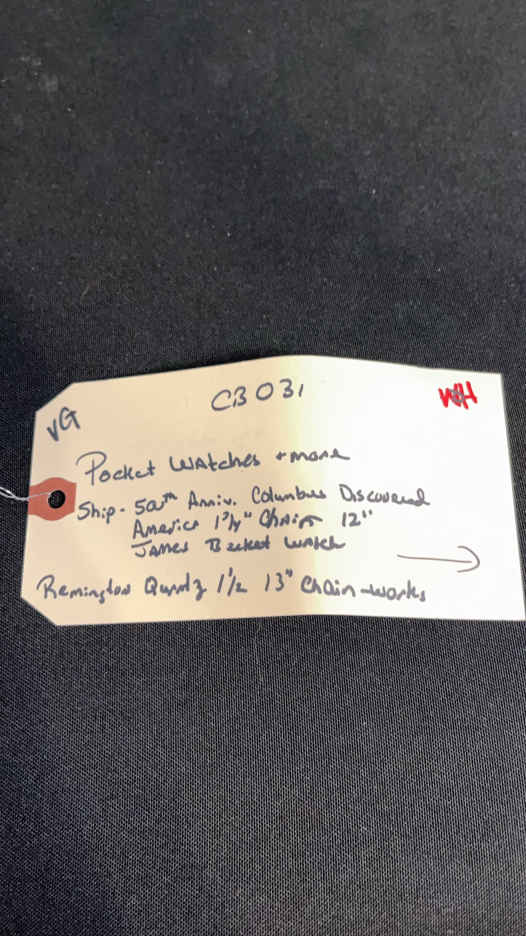 VG
CB031
WH
Pocket Watches + more
Ship - 500th Anniv. Columbus Discovered
America 1 3/4" Chain 12"
James Becket Watch
Remington Quartz 1 1/2 13" Chain - works